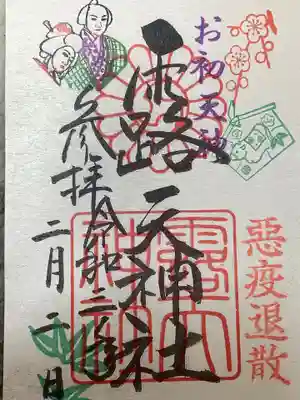 お初天神
惡疫退散
露天神社
参拝令和三年
二月二日
露天
神社